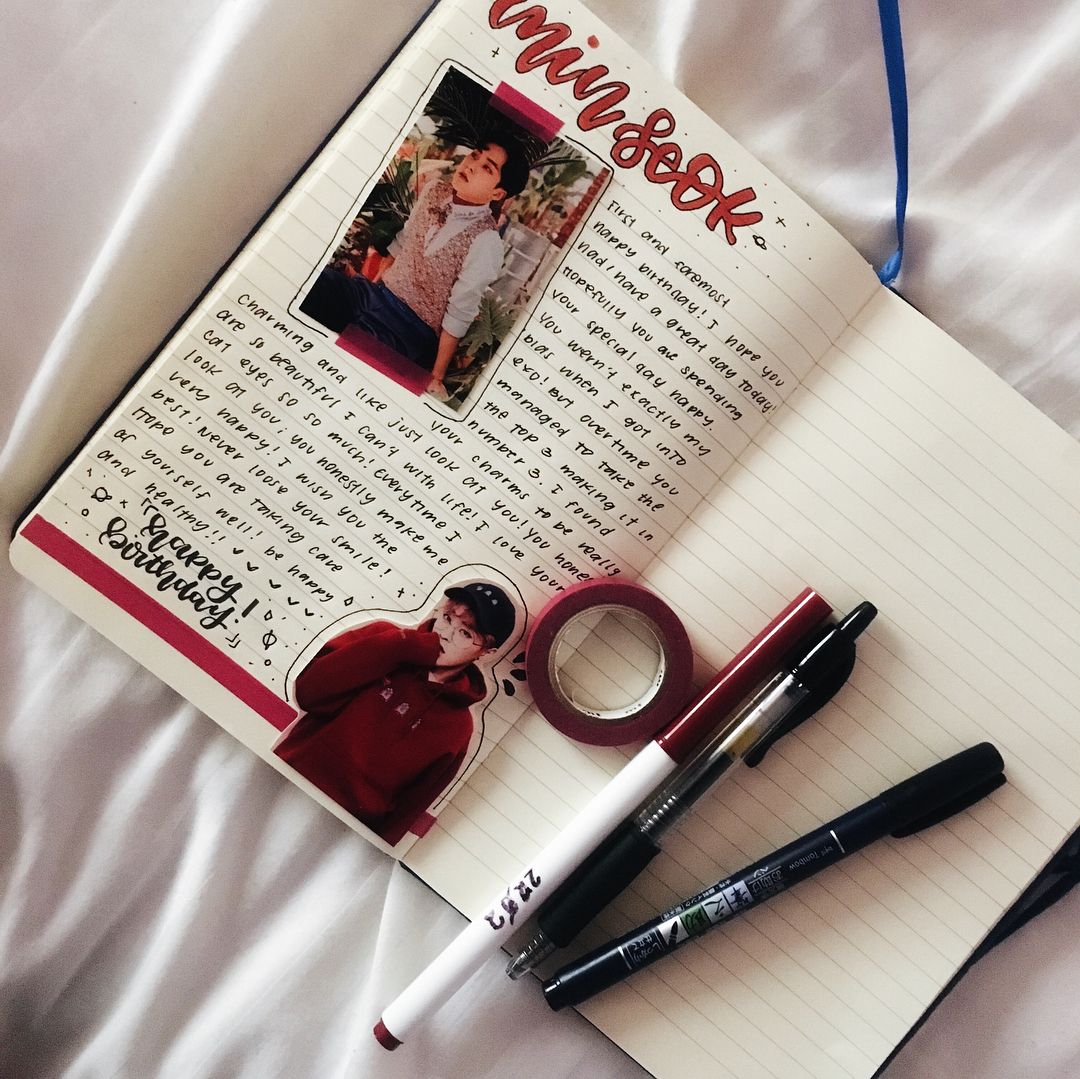 minseok
First and foremost
happy birthday! I hope you
had/have a great day today!
Hopefully you are spending
your special day happy.
You wern't exactly my
bias when I got into
exo! But overtime you
managed to take the
the top 3 making it in
number 3. I found
your charms to be really
charming and like just look at you! you
are so beautiful I can't with life! I love your
cat eyes so so much! Everytime I
look at you; you honestly make me
very happy! I wish you the
best! Never loose your smile!
Hope you are taking care
of yourself well! be happy
and healthy!!
「happy
birthday!」
by Tombow